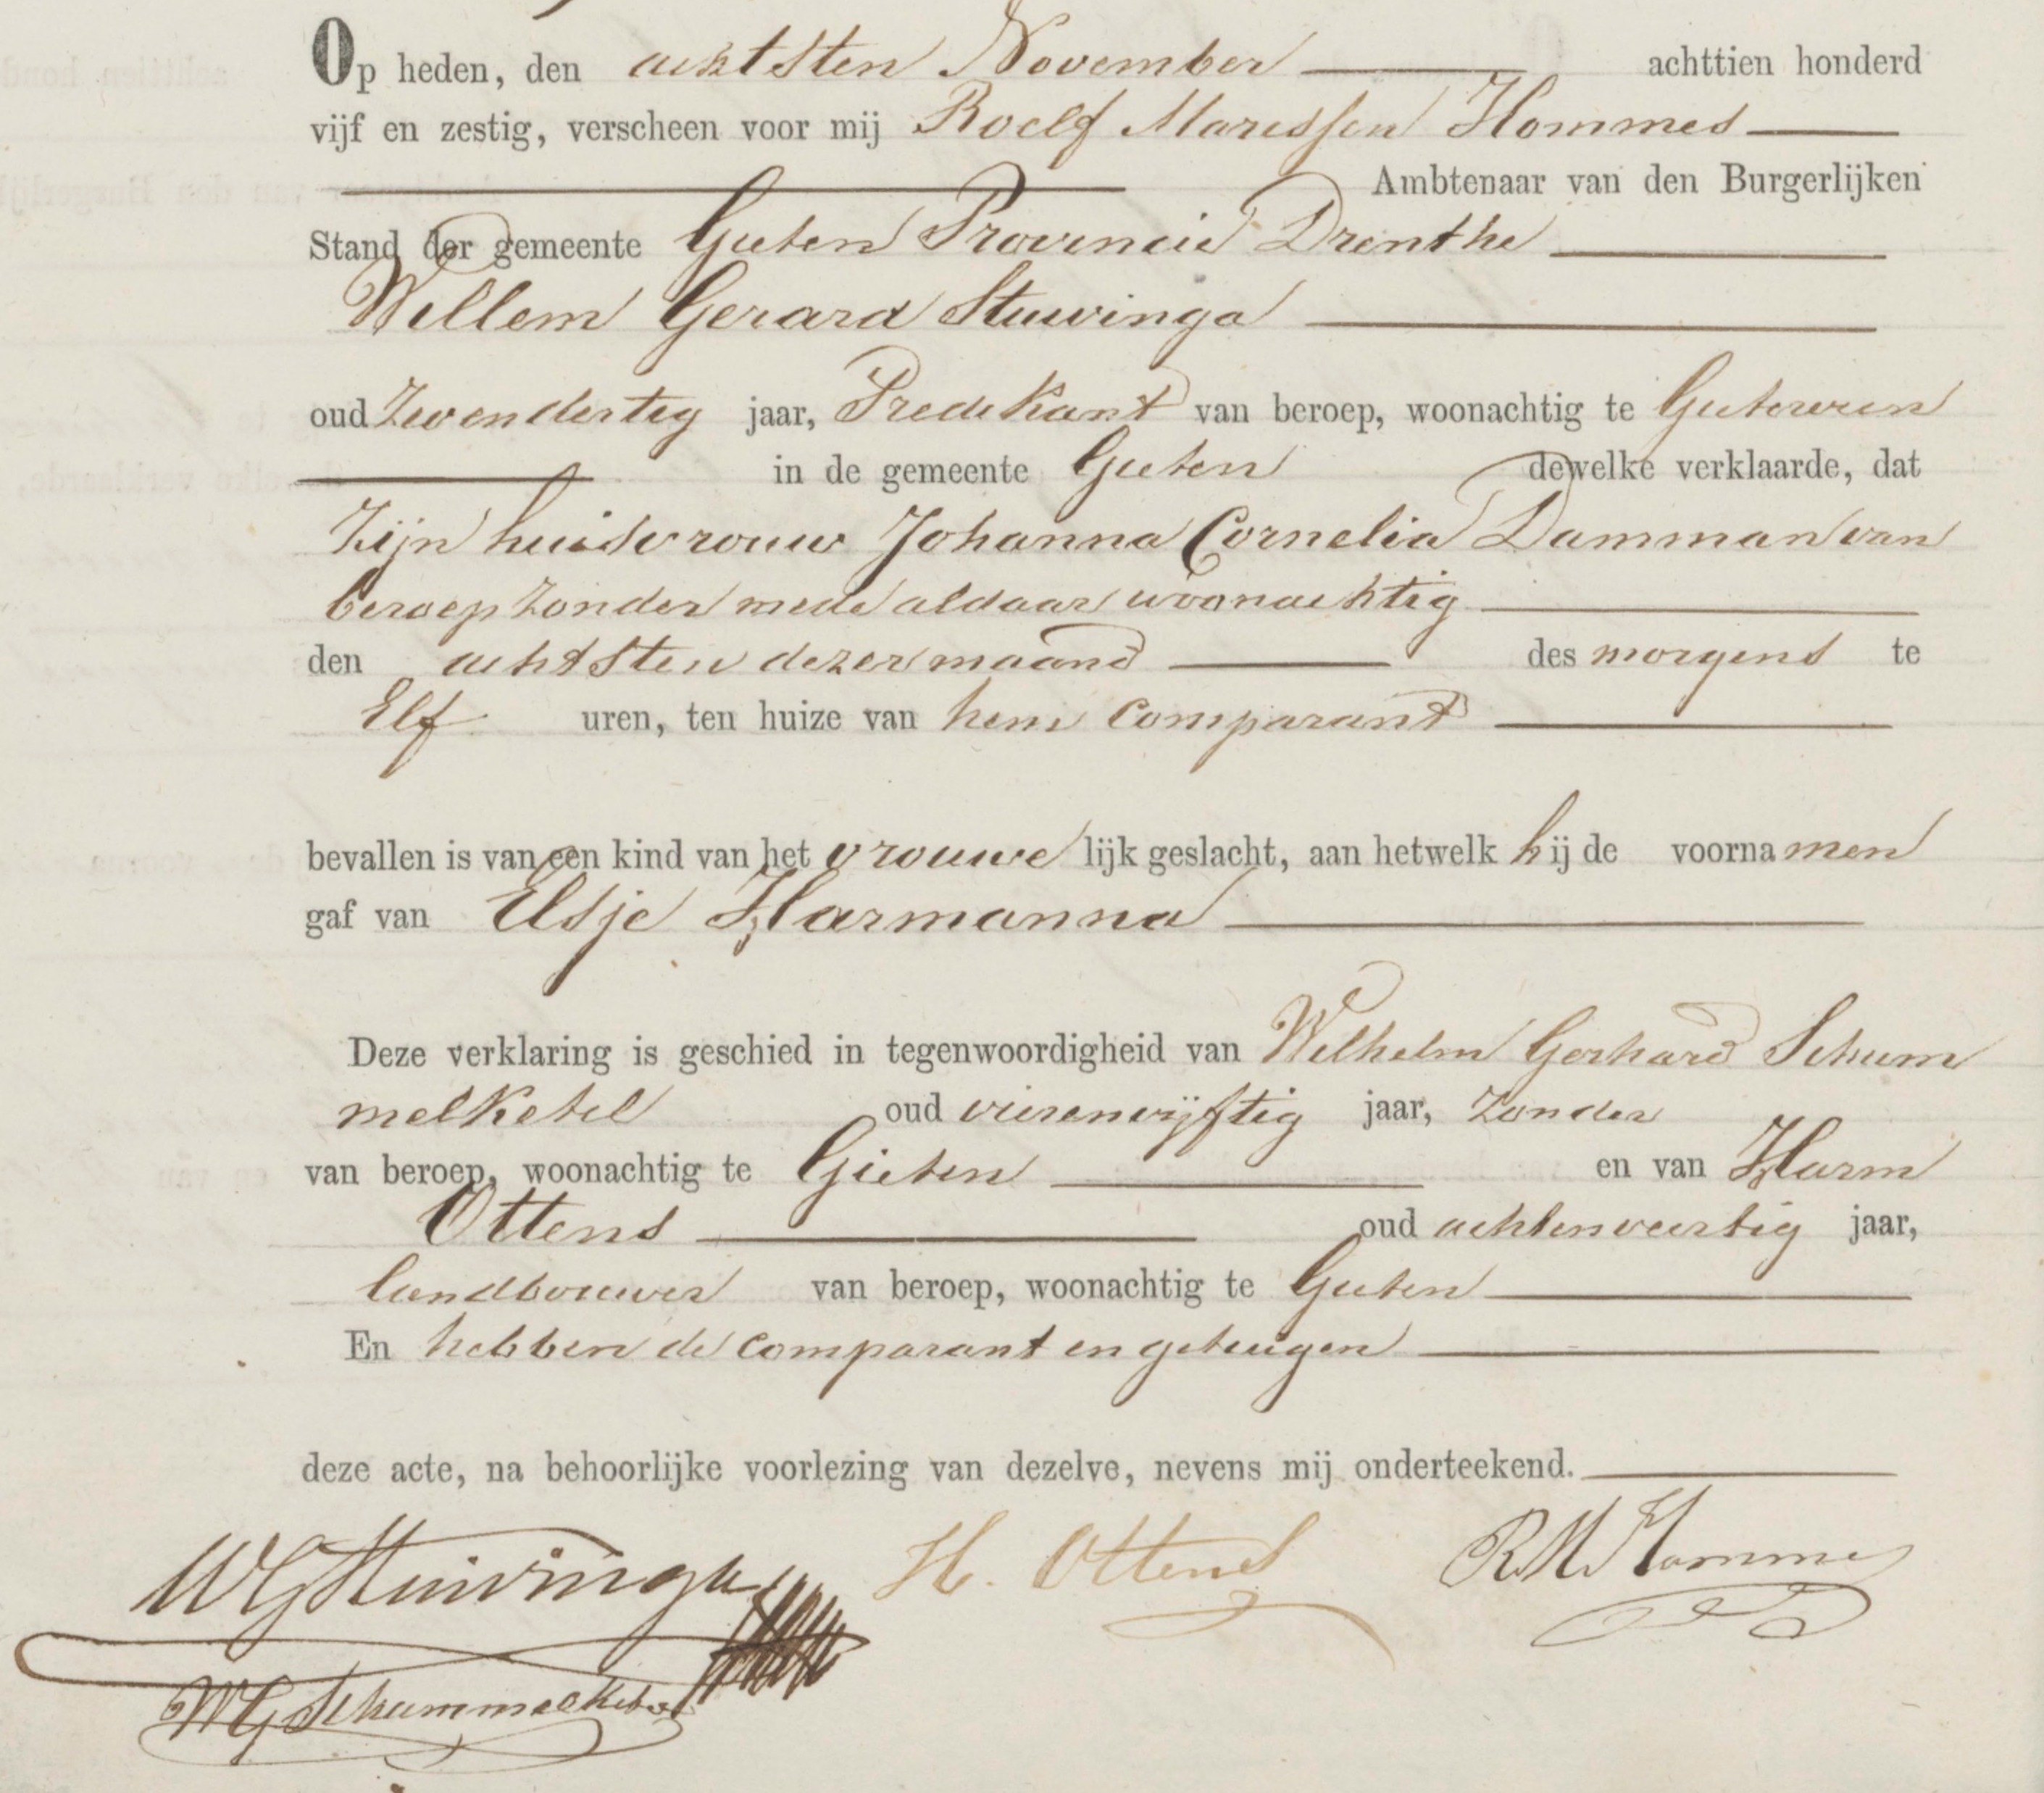 Op heden, den achtsten November achttien honderd
vijf en zestig, verscheen voor mij Roelf Marissen Hommes
Ambtenaar van den Burgerlijken
Stand der gemeente Gieten Provincie Drenthe
Willem Gerard Stuivinga
oud Zevendertig jaar, Predikant van beroep, woonachtig te Gieterveen
in de gemeente Gieten dewelke verklaarde, dat
Zijn huisvrouw Johanna Cornelia Damman van
beroep zonder mede aldaar woonachtig
den achtsten dezer maand des morgens te
Elf uren, ten huize van hem Comparant
bevallen is van een kind van het vrouwelijk geslacht, aan hetwelk hij de voornamen
gaf van Elsje Harmanna
Deze verklaring is geschied in tegenwoordigheid van Wilhelm Gerhard Schum
melketel oud vierenvijftig jaar, Zonder
van beroep, woonachtig te Gieten en van Harm
Ottens oud achtenveertig jaar,
landbouwer van beroep, woonachtig te Gieten
En hebben de Comparant en getuigen
deze acte, na behoorlijke voorlezing van dezelve, nevens mij onderteekend.
WGStuivinga H. Ottens RMHommes
WGSchummelketel